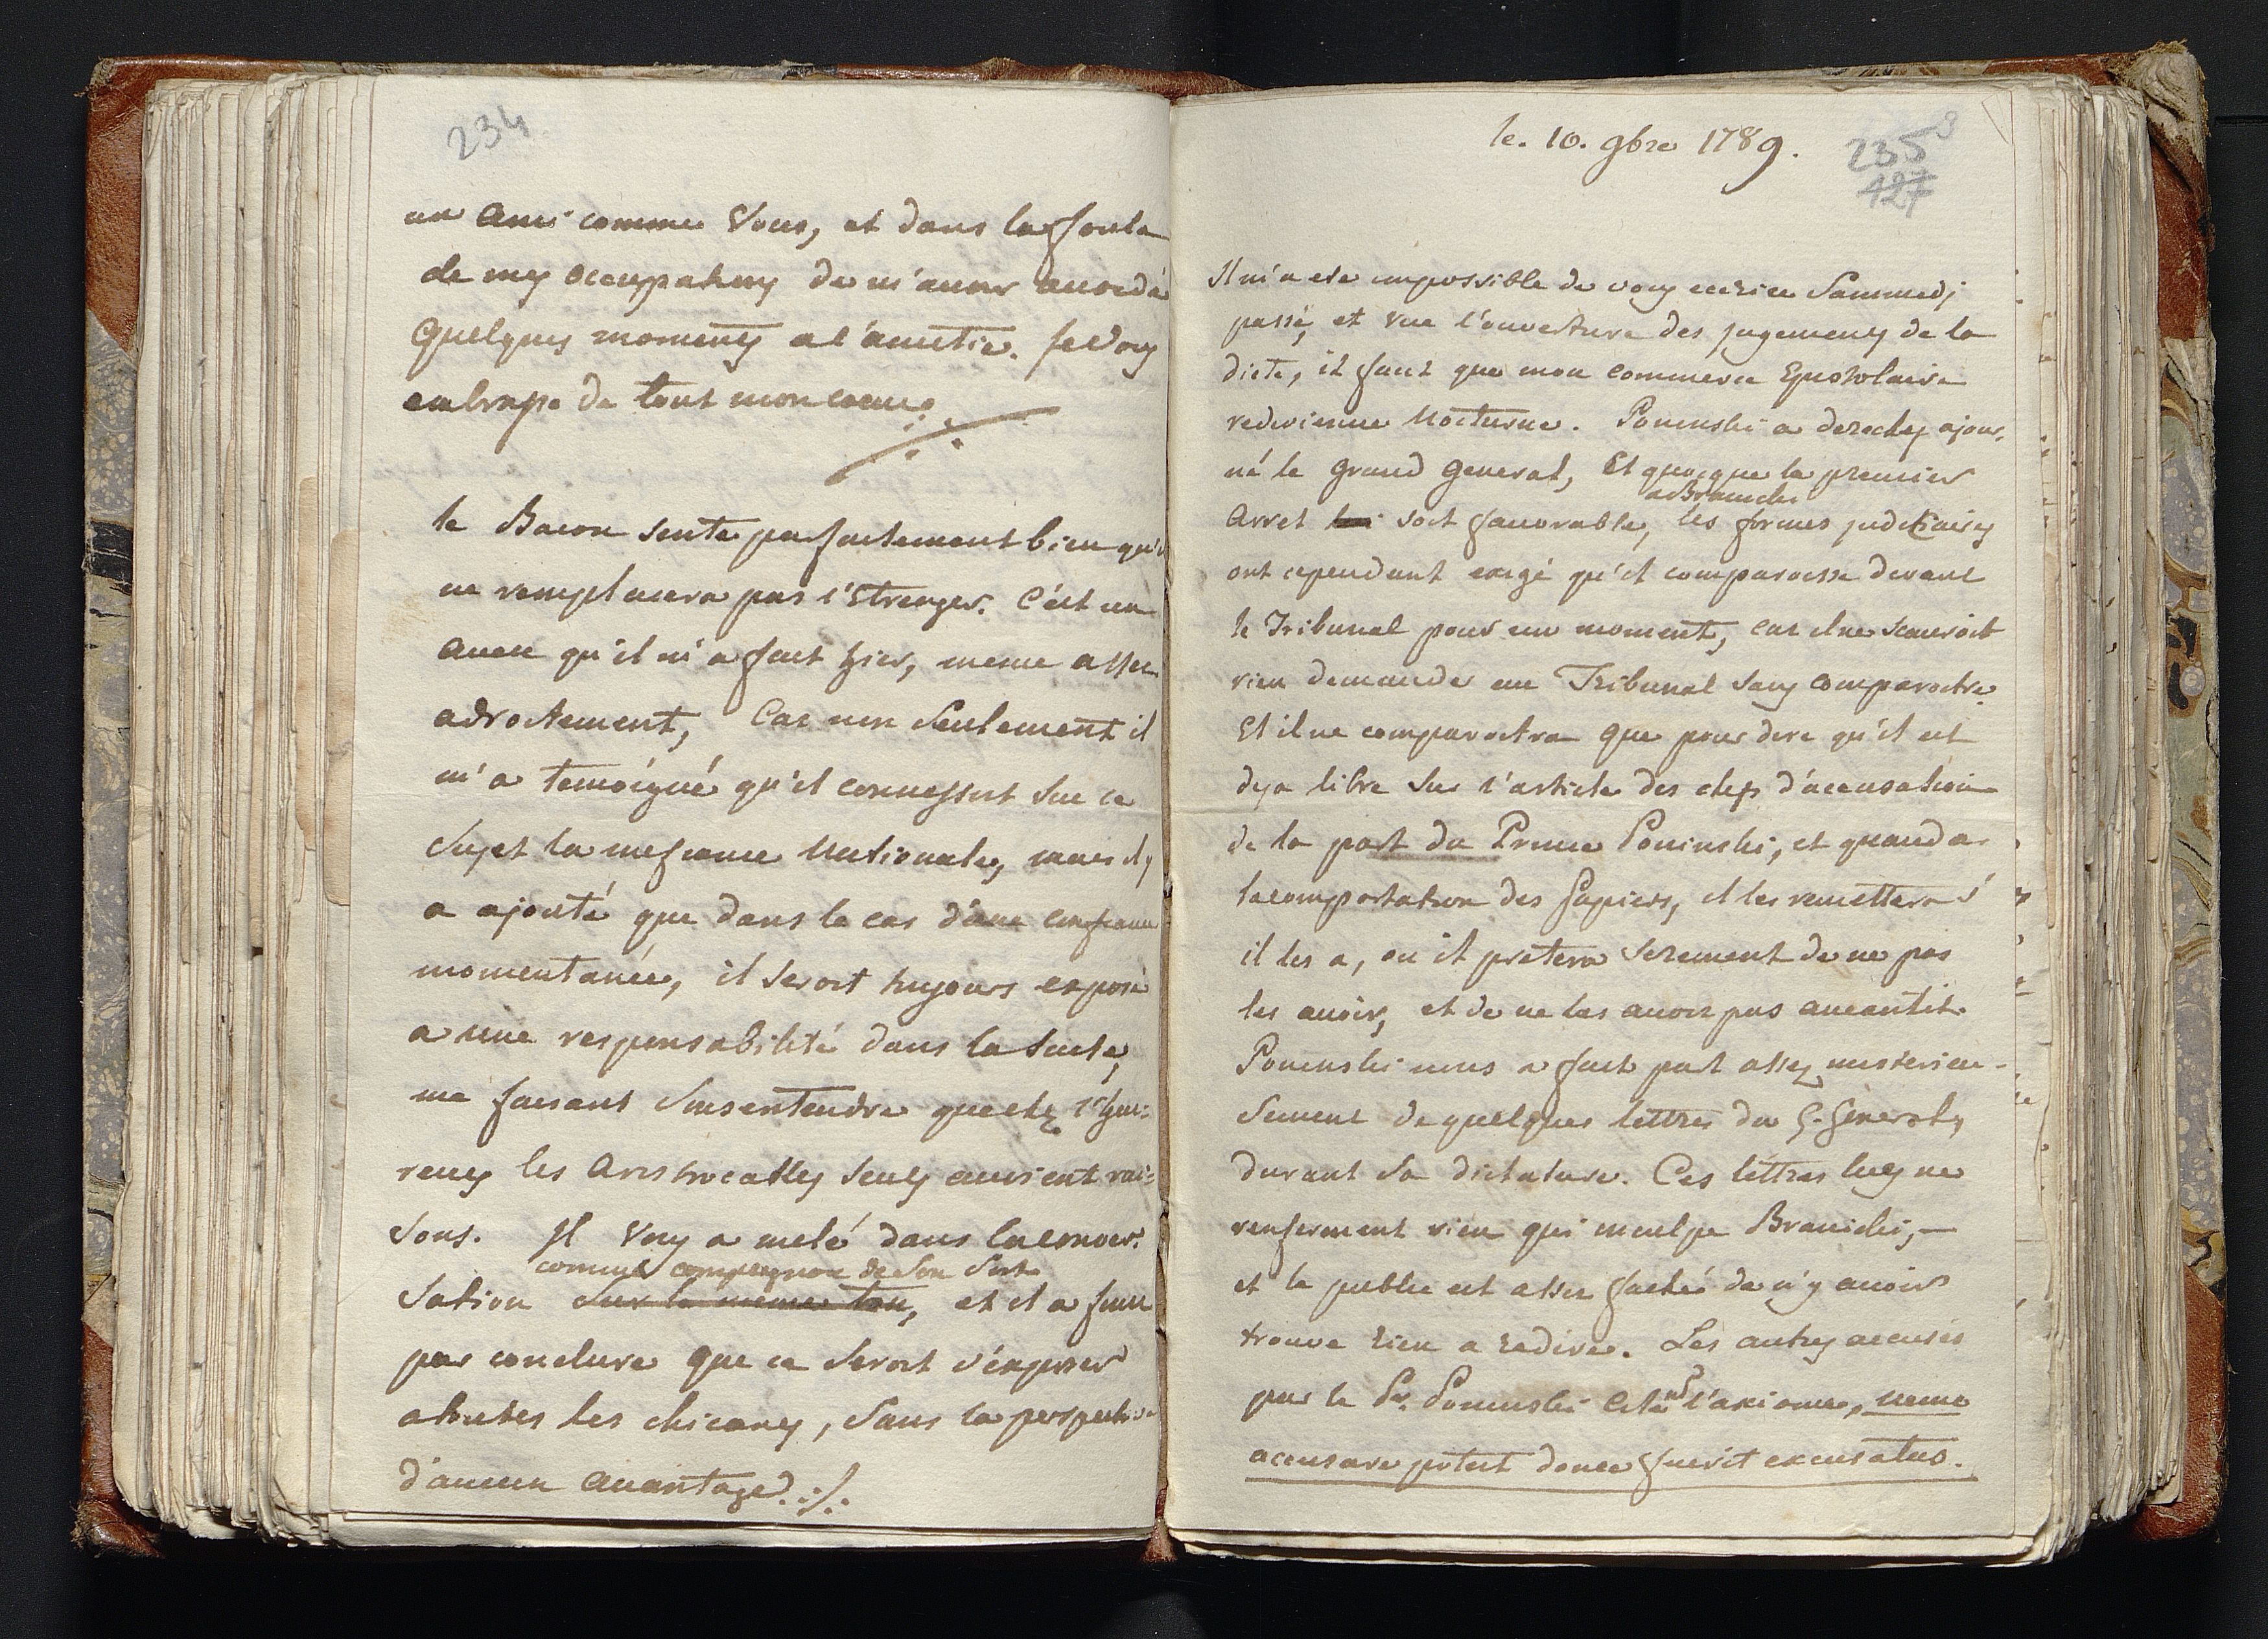 234
un ami comme Vous, et dans la foule
de mes occupations de m'avoir accordé
quelques moments a l'amitié. Je Vous
embrasse de tout mon coeur.
le Baron sente parfaitement bien qu'il
ne remplacera pas l'Etranger. C'est un
aveu qu'il m'a fait hier, meme assez
adroitement, Car non seulement il
m'a temoigné qu'il connessoit sur ce
sujet la mefiance Nationale, mais il y
a ajouté que dans le cas d'une confiance
momentanée, il seroit toujours exposé
a une responsabilité dans la suite,
me faisant sousentendre que chez
les Aristocattes seuls
sons. Il Vous a melé dans la conver:
comme compagnon de son sort
sation sur le meme ton, et il a finit
par conclure que ce seroit s'exposer
a toutes les chicanes, sans la perspective
d'aucun avantage ./.
le. 10. 9bre 1789.
235
127
Il m'a eté impossible de vous ecrire Sammedj
passé, et vue l'ouverture des jugements de la
diete, il faut que mon commerce Epistolaire
redevienne Nocturne. Poninski a derechef ajour,
né le grand General, Et quoique le premier
a Branicki
Arret lui soit favorable, les formes judiciaires
ont cependant exigé qu'il comparoisse devant
le Tribunal pour un moment, car il ne scauroit
rien demander au Tribunal sans comparoitre.
Et il ne comparoitra que pour dire qu'il est
deja libre sur l'article des chefs d'accusation
de la part du Prince Poninski, et quand a
la comportation des papiers, il les remettera s'
il les a, ou il pretera serement de ne pas
les avoir, et de ne les avoir pas aneantit.
Poninski nous a fait part assez misterieu-
sement de quelques lettres du G. General,
durant sa dictature. Ces lettres lues ne
renferment rien qui inculpe Branicki, -
et le public est assez faché de n'y avoir
trouve rien a redire. Les autres accusés
par le Pce. Poninski citent l'axiome, nemo
acusare potest donec fuerit excusatus.